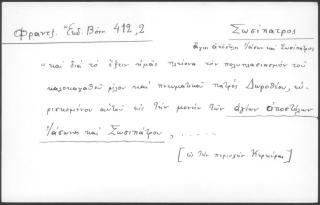 Φραντζ. Ἔκδ. Βόν. 412,2
Σωσίπατρος
ἅγιοι ἀπόστολοι Ἰάσων καὶ Σωσίπατρος
"καὶ διὰ τὸ ἕξειν ἡμᾶς πλείονα τὸν πολυπλασιασμὸν τοῦ
καλοκαγαθοῦ φίλου καὶ πνευματικοῦ πατρὸς Δωροθέου, εὑ-
ρισκομένου αὐτοῦ εἰς τὴν μονὴν τῶν ἁγίων ἀποστόλων
Ἰάσωνος καὶ Σωσιπάτρου, .....
[εἰς τὴν περιοχὴν Κερκύρας]